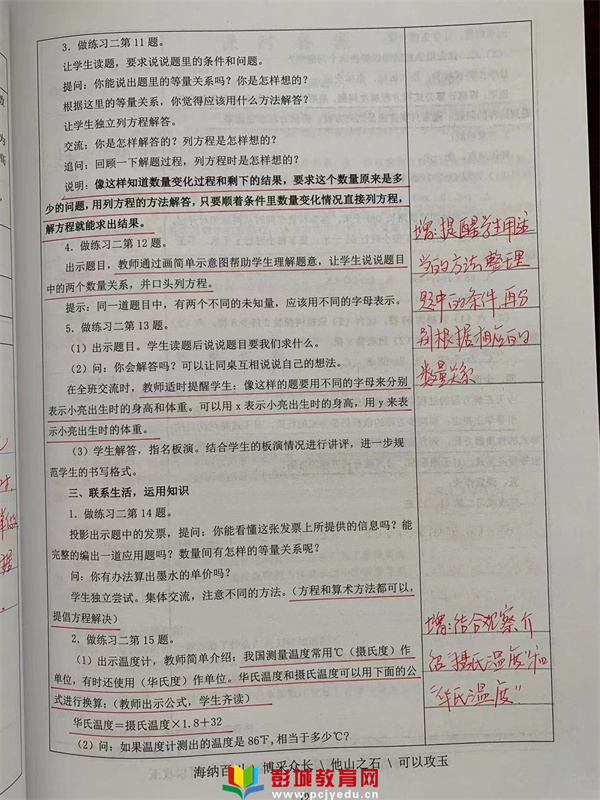 3. 做练习二第 11 题。
让学生读题，要求说说题里的条件和问题。
提问：你能说出题里的等量关系吗？你是怎样想的？
根据这里的等量关系，你觉得应该用什么方法解答？
让学生独立列方程解答。
交流：你是怎样解答的？列方程是怎样想的？
追问：回顾一下解题过程，列方程时是怎样想的？
说明：像这样知道数量变化过程和剩下的结果，要求这个数量原来是多
少的问题，用列方程的方法解答，只要顺着条件里数量变化情况直接列方程，
解方程就能求出结果。
4. 做练习二第 12 题。
出示题目，教师通过画简单示意图帮助学生理解题意，让学生说说题目
中的两个数量关系，并口头列方程。
提示：同一道题目中，有两个不同的未知量，应该用不同的字母表示。
5. 做练习二第 13 题。
（1）出示题目。学生读题后说说题目要我们求什么。
（2）问：你会解答吗？可以让同桌互相说说自己的想法。
在全班交流时，教师适时提醒学生：像这样的题要用不同的字母来分别
表示小亮出生时的身高和体重。可以用 x 表示小亮出生时的身高，用 y 来表
示小亮出生时的体重。
（3）学生解答，指名板演。结合学生的板演情况进行讲评，进一步规
范学生的书写格式。
三、联系生活，运用知识
1. 做练习二第 14 题。
投影出示题中的发票，提问：你能看懂这张发票上所提供的信息吗？能
完整的编出一道应用题吗？数量间有怎样的等量关系呢？
问：你有办法算出墨水的单价吗？
学生独立尝试。集体交流，注意不同的方法。（方程和算术方法都可以，
提倡方程解决）
2. 做练习二第 15 题。
（1）出示温度计，教师简单介绍：我国测量温度常用℃（摄氏度）作
单位，有时还使用（华氏度）作单位。华氏温度和摄氏温度可以用下面的公
式进行换算：（教师出示公式，学生齐读）
华氏温度＝摄氏温度×1.8＋32
（2）问：如果温度计测出的温度是 86℉，相当于多少℃？
增：提醒学生用适
当的方法整理
题中的条件，再分
别根据相应的
数量关系
增：结合观察介
绍“摄氏温度”和
“华氏温度”
海纳百川 \ 博采众长 \ 他山之石 \ 可以攻玉
彭城教育网
www.pcjyedu.cn